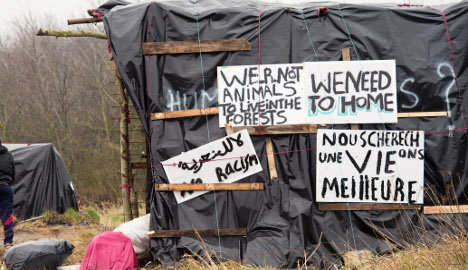 WE R NOT
ANIMALS
TO LIVE IN THE
FORESTS
WE NEED
TO HOME
لا للعنصرية
Racism
NOUS CHERECH
UNE VIE ons
MEILLEURE
?